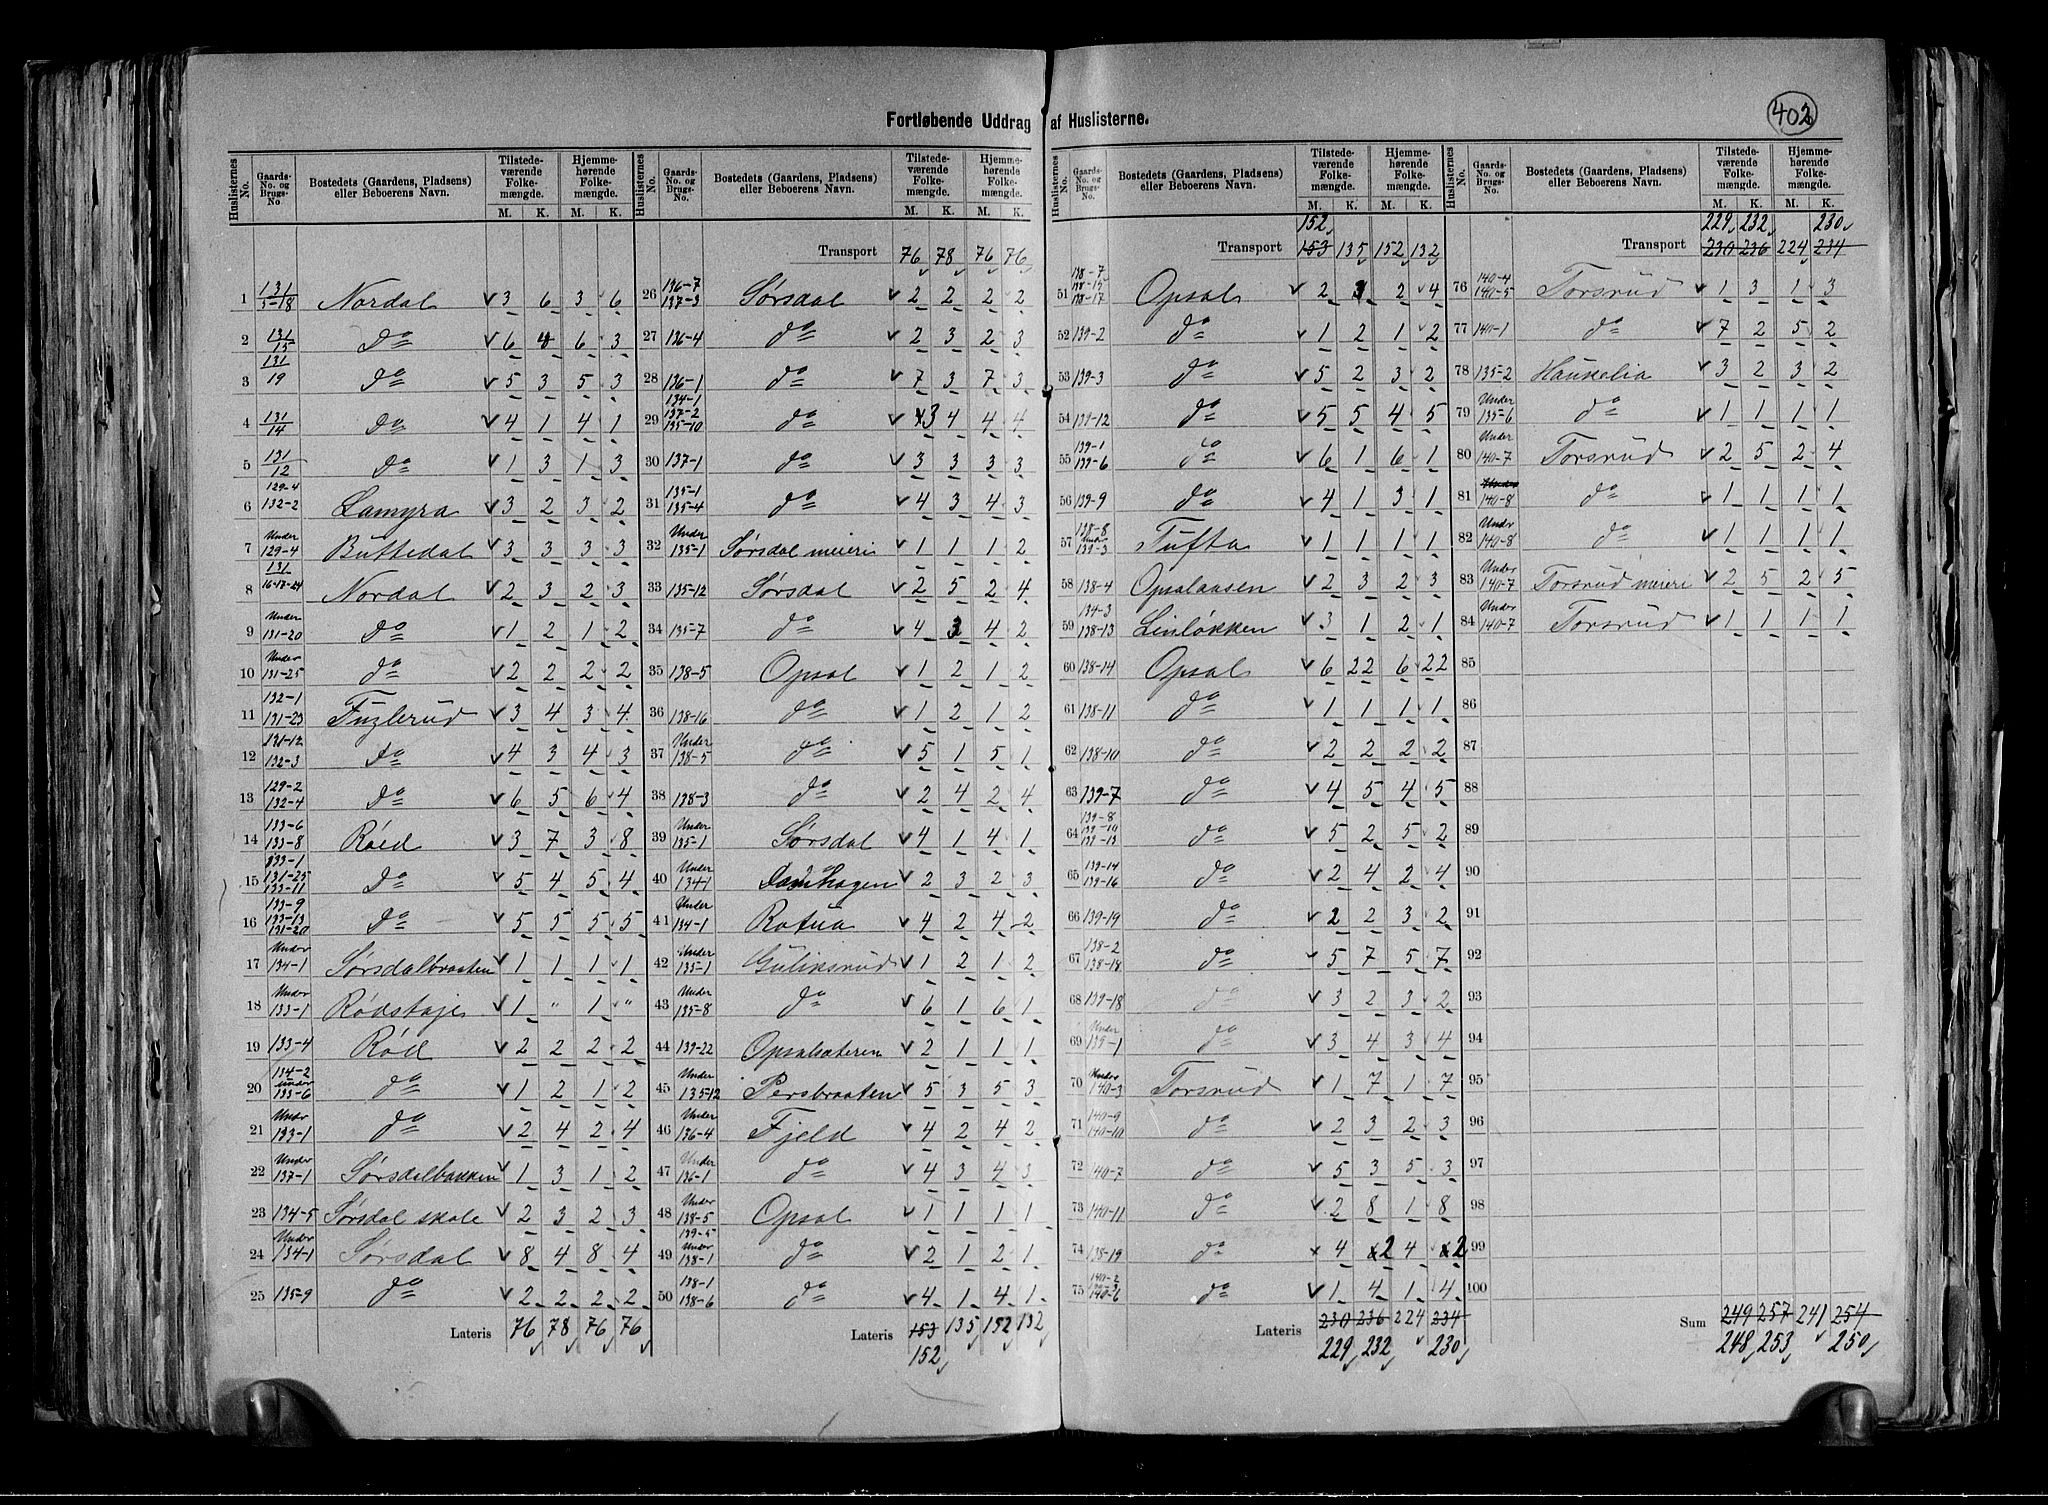 402
Fortløbende Uddrag af Huslisterne.
Huslisternes No. | Gaards-No. og Brugs-No | Bostedets (Gaardens, Pladsens) eller Beboerens Navn. | Tilstedeværende Folkemængde. M. K. | Hjemmehørende Folkemængde. M. K.
1 131/5-18 Nordal 3 6 3 6
2 131/15 Do 6 4 6 3
3 131/19 Do 5 3 5 3
4 131/14 Do 4 1 4 1
5 131/12 Do 1 3 1 3
6 129-4 132-2 Lamyra 3 2 3 2
7 Under 129-4 Buttedal 3 3 3 3
8 131/16-17-24 Nordal 2 3 2 3
9 Under 131-20 Do 1 2 1 2
10 Under 131-25 do 2 2 2 2
11 132-1 131-23 Fuglerud 3 4 3 4
12 131-12 132-3 Do 4 3 4 3
13 129-2 132-4 Do 6 5 6 4
14 133-6 133-8 Röed 3 7 3 8
15 133-1 131-25 133-11 Do 5 4 5 4
16 133-9 133-13 131-20 Do 5 5 5 5
17 Under 134-1 Sørsdalbraaten 1 1 1 1
18 Under 133-1 Rødstøje 1 " 1 "
19 133-4 Röd 2 2 2 2
20 134-2 under 133-6 do 1 2 1 2
21 Undr 133-1 do 2 4 2 4
22 Under 137-1 Sørsdalbakken 1 3 1 2
23 134-5 Sørsdal skole 2 3 2 3
24 Under 134-1 Sørsdal 8 4 8 4
25 135-9 do 2 2 2 2
Lateris 76 78 76 76
Transport 76 78 76 76
26 136-7 137-3 Sørsdal 2 2 2 2
27 136-4 do 2 3 2 3
28 136-1 do 7 3 7 3
29 134-1 137-2 135-10 do 3 4 4 4
30 137-1 do 3 3 3 3
31 135-1 135-4 do 4 3 4 3
32 Under 135-1 Sørsdal meieri 1 1 1 2
33 135-12 Sørsdal 2 5 2 4
34 135-7 do 4 3 4 2
35 138-5 Opsal 1 2 1 2
36 138-16 do 1 2 1 2
37 Under 138-5 do 5 1 5 1
38 138-3 do 2 4 2 4
39 Under 135-1 Sørsdal 4 1 4 1
40 Under 134-1 Damhagen 2 3 2 3
41 Under 134-1 Rotua 4 2 4 2
42 Under 135-1 Guliksrud 1 2 1 2
43 Under 135-8 do 6 1 6 1
44 139-22 Opsalsæteren 2 1 1 1
45 Under 135-12 Persbraaten 5 3 5 3
46 Under 136-4 Fjeld 4 2 4 2
47 Under 136-1 do 4 3 4 3
48 Under 138-5 Opsal 1 1 1 1
49 139-5 Under 138-1 do 2 1 2 1
50 138-1 138-6 do 4 1 4 1
Lateris 153 135 152 132
152
152
Transport 153 135 152 132
51 138-7 138-15 138-17 Opsal 2 3 2 4
52 139-2 do 1 2 1 2
53 139-3 do 5 2 3 2
54 139-12 do 5 5 4 5
55 139-1 139-6 do 6 1 6 1
56 139-9 do 4 1 3 1
57 138-8 139-3 Tufta 1 1 1 1
58 138-4 Opsalaasen 2 3 2 3
59 134-3 138-13 Linløkken 3 1 2 1
60 138-14 Opsal 6 22 6 22
61 138-11 do 1 1 1 1
62 138-10 do 2 2 2 2
63 139-7 do 4 5 4 5
64 139-8 139-10 139-13 do 5 2 5 2
65 139-14 139-16 do 2 4 2 4
66 139-19 do 2 2 3 2
67 138-2 138-18 do 5 7 5 7
68 139-18 do 3 2 3 2
69 Under 139-1 do 3 4 3 4
70 Under 140-3 Torsrud 1 7 1 7
71 140-9 140-10 do 2 3 2 3
72 140-7 do 5 3 5 3
73 140-11 do 2 8 1 8
74 138-19 do 4 2 4 2
75 140-2 140-6 do 1 4 1 4
Lateris 230 236 224 234
229 232 230
229 232 230
Transport 230 236 224 234
76 140-4 140-5 Torsrud 1 3 1 3
77 140-1 do 7 2 5 2
78 135-2 Haukelia 3 2 3 2
79 Under 135-6 do 1 1 1 1
80 Under 140-7 Torsrud 2 5 2 4
81 Under 140-8 do 1 1 1 1
82 Undr 140-8 do 1 1 1 1
83 Under 140-7 Torsrud meieri 2 5 2 5
84 Undr 140-7 Torsrud 1 1 1 1
85
86
87
88
89
90
91
92
93
94
95
96
97
98
99
100
Sum 249 257 241 254
248 253 250